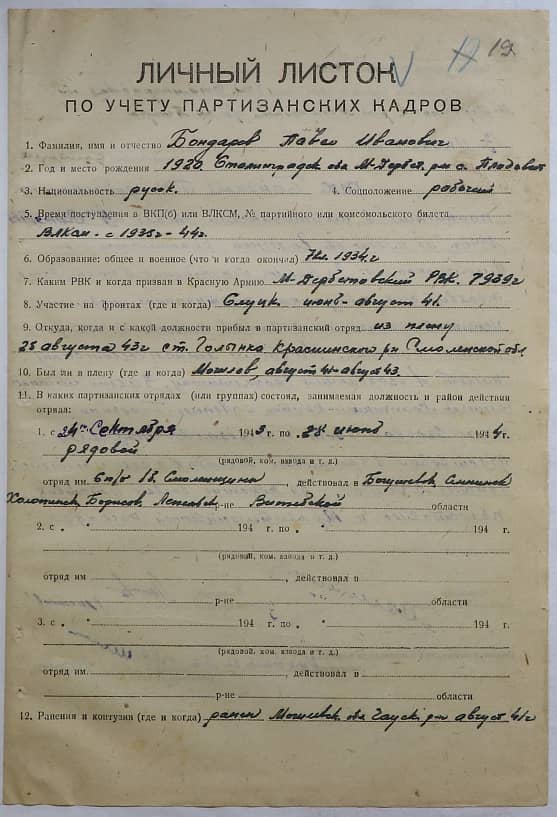 19
ЛИЧНЫЙ ЛИСТОК
ПО УЧЕТУ ПАРТИЗАНСКИХ КАДРОВ
1. Фамилия, имя и отчество Бондарев Павел Иванович
2. Год и место рождения 1920. Сталинградск. обл М-Дербет. р-н с. Плодовит
3. Национальность русск. 4. Соцположение рабочий
5. Время поступления в ВКП(б) или ВЛКСМ, № партийного или комсомольского билета
ВЛКсм - с 1935г - 44г.
6. Образование: общее и военное (что и когда окончил) 7кл. 1934.г
7. Каким РВК и когда призван в Красную Армию М-Дербетовский РВК. 1939г
8. Участие на фронтах (где и когда) Слуцк. июнь-август 41.
9. Откуда, когда и с какой должности прибыл в партизанский отряд из плену
28 августа 43г ст. Голынка Краснинского р-н Смоленской обл.
10. Был ли в плену (где и когда) Могилев, август 41-август 43.
11. В каких партизанских отрядах (или группах) состоял, занимаемая должность и район действия
отряда:
1. с 24го Сентября 1943 г. по 28 июнь 1944 г.
рядовой
(рядовой, ком. взвода и т. д.)
отряд им. 6 п/о 1б. Смоленщина, действовал в Богушевск Сеннинск
Холопинск, Борисов, Лепельск р-не Витебской области
2. с „ " 194 г. по „ " 194 г.
(рядовой, ком. взвода и т. д.)
отряд им , действовал в
р-не области
3. с „ " 194 г. по „ " 194 г.
(рядовой, ком. взвода и т. д.)
отряд им. , действовал в
р-не области
12. Ранения и контузия (где и когда) ранен Могилевск. обл Чауск. р-н август 41г